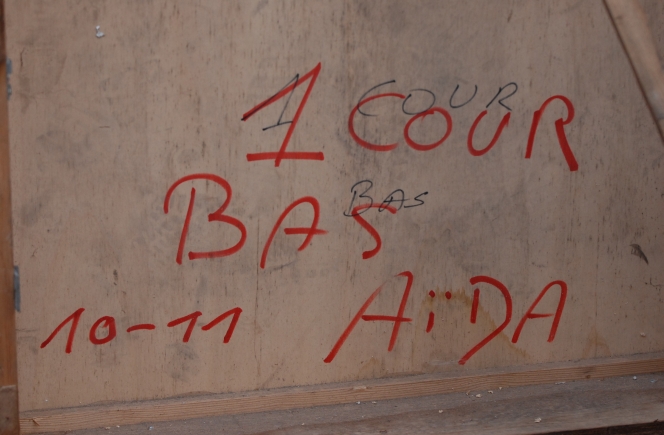 1 COUR
1 COUR
BAS
BAS
10-11 AÏDA